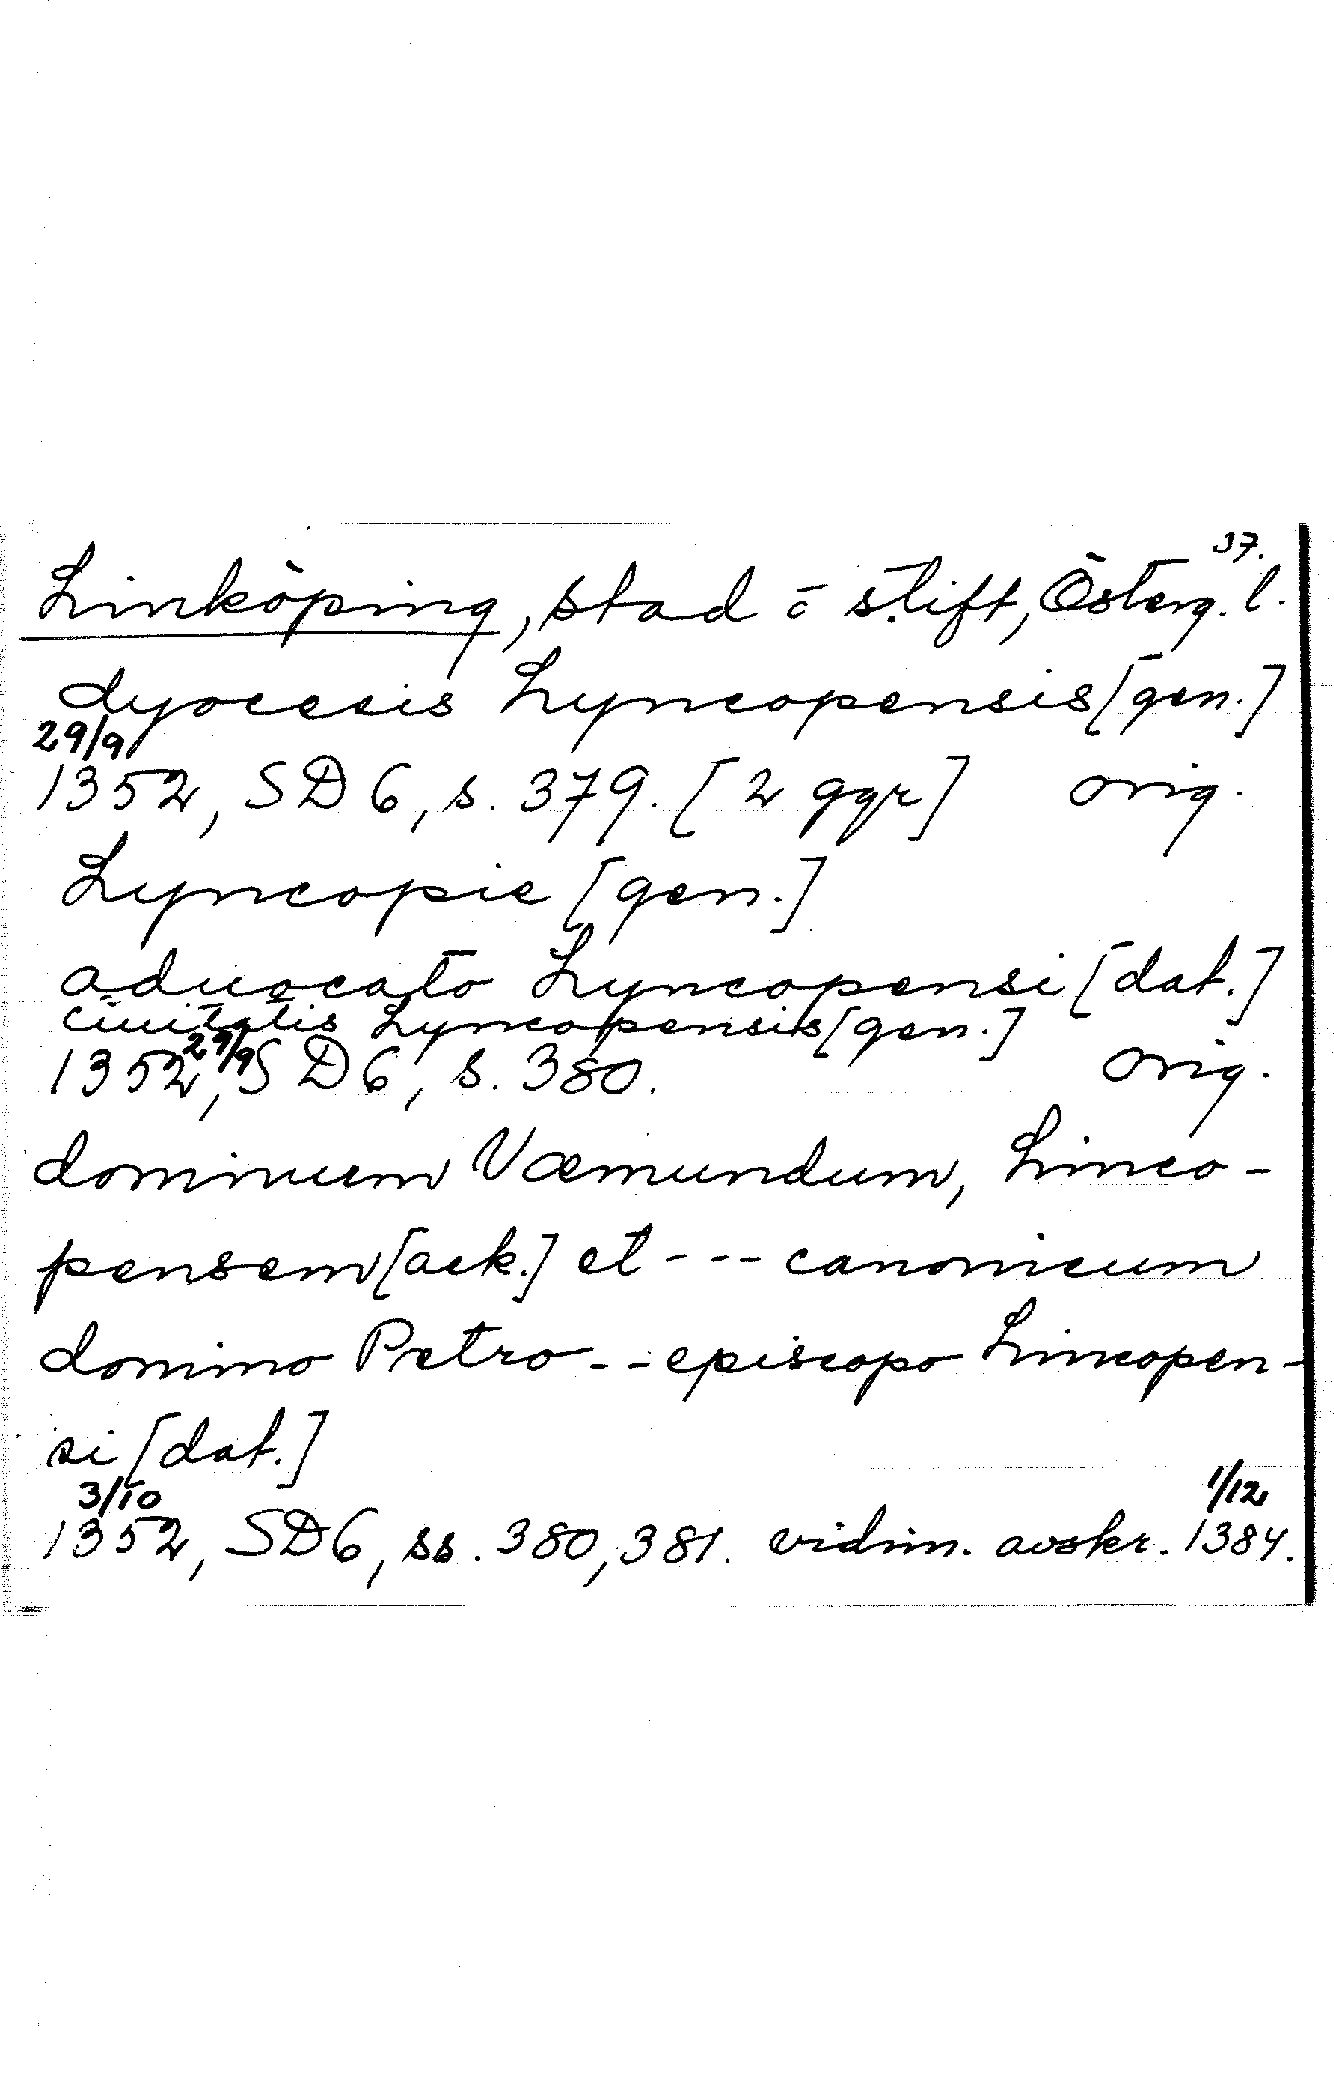 37.
Linköping, stad o stift, Österg. l.
dyocesis Lyncopensis [gen.]
29/9
1352, SD 6, s. 379. [2 ggr] orig.
Lyncopie [gen.]
aduocato Lyncopensi [dat.]
ciuitatis Lyncopensis [gen.]
29/9
1352, SD 6, s. 380. orig.
dominum Væmundum, Linco-
pensem [ack.] et --- canonicum
domino Petro -- episcopo Lincopen-
si [dat.]
3/10 1/12
1352, SD 6, ss. 380, 381. vidim. avskr. 1384.